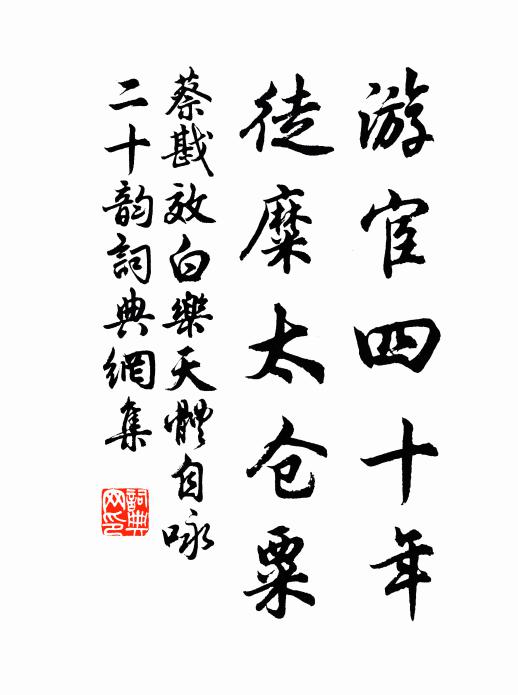 游宦四十年
徒糜太仓粟
蔡戡效白樂天體自咏
二十韵詞典網集
詞典
网印